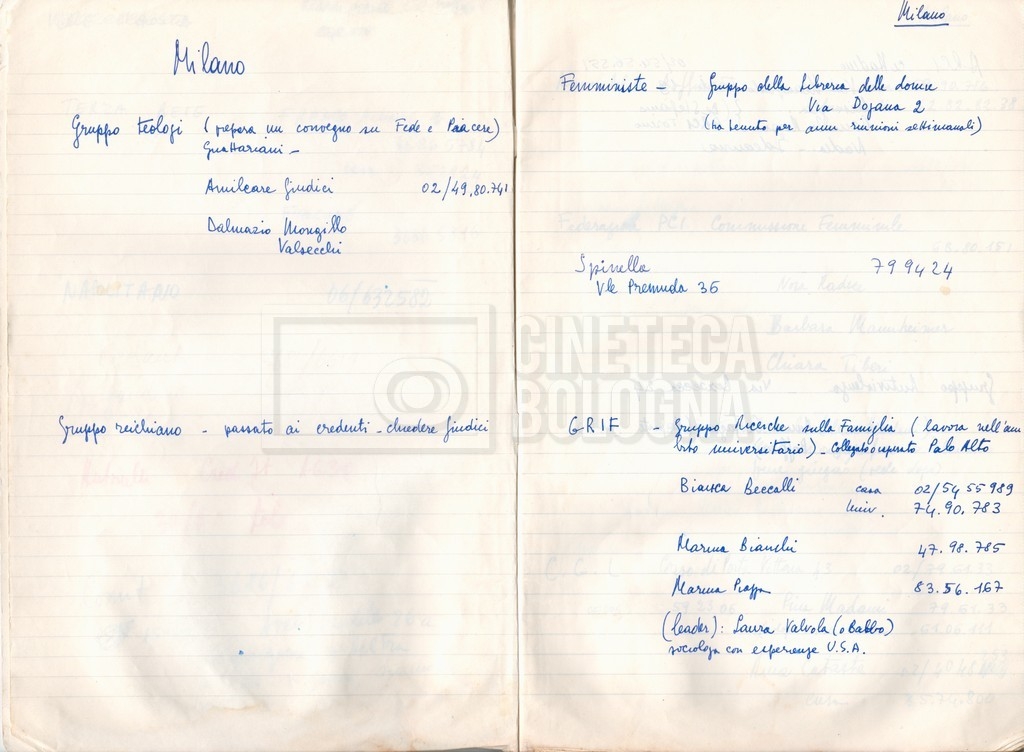 Milano
Gruppo teologi (prepara un convegno su Fede e Piacere)
Guattariani -
Amilcare Giudici 02/49.80.741
Dalmazio Mongillo
Valsecchi
NAPOLITANO 06/632582
Gruppo reichiano - passato ai credenti - chiedere Giudici
Milano
Femministe - Gruppo della Libreria delle donne
Via Dogana 2
(ha tenuto per anni riunioni settimanali)
Federazione PCI Commissione Femminile
Spinella 799424
Vle Premuda 36
CINETECA
BOLOGNA
GRIF - Gruppo Ricerche sulla Famiglia (lavora nell'am
bito universitario) - collegato Palo Alto
Bianca Beccalli casa 02/54 55 989
Univ. 74.90.783
Marina Bianchi 47.98.785
Marina Piazza 83.56.167
(leader): Laura Valvola (o Babbo)
sociologa con esperienze U.S.A.